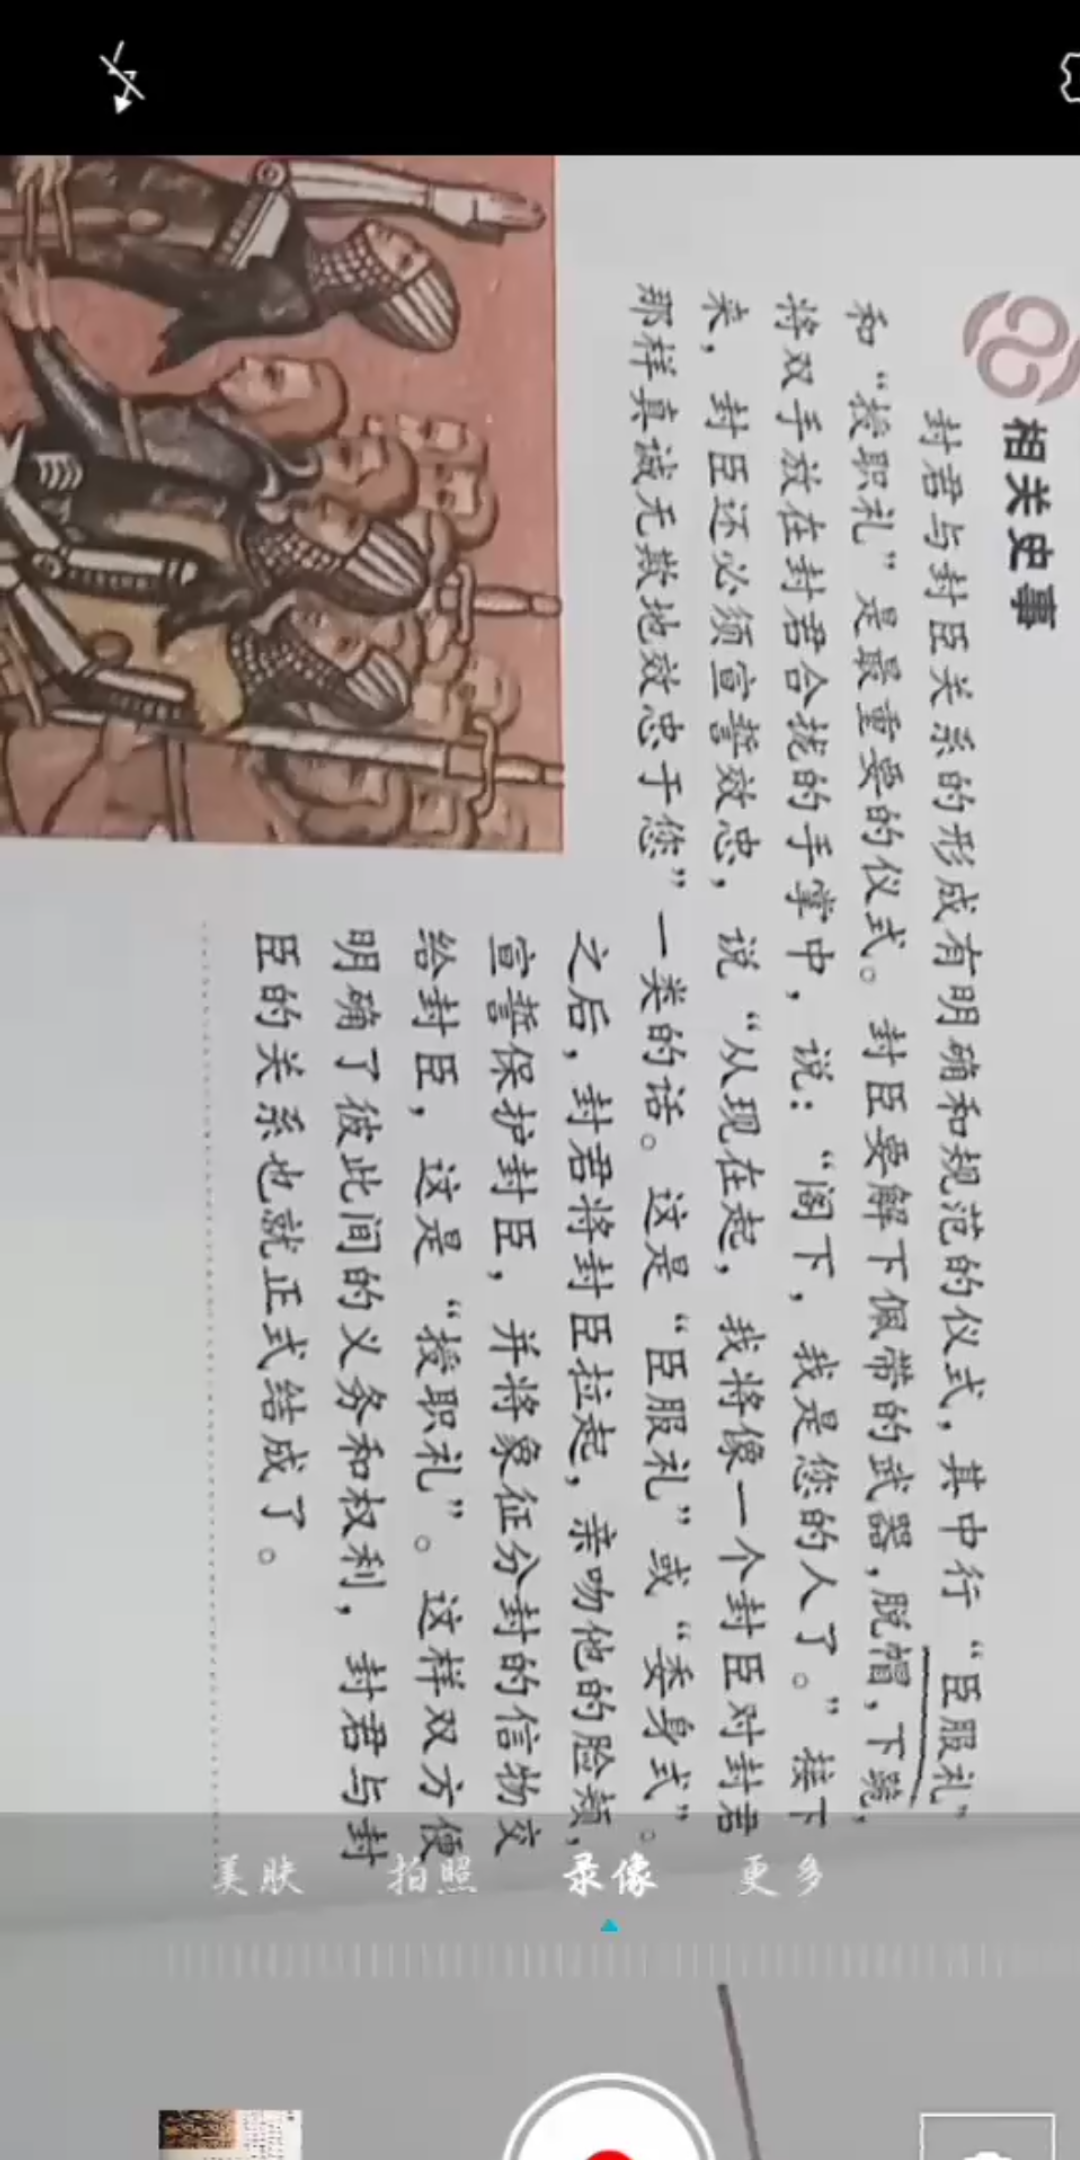 相关史事
封君与封臣关系的形成有明确和规范的仪式，其中行“臣服礼”
和“授职礼”是最重要的仪式。封臣要解下佩带的武器，脱帽，下跪，
将双手放在封君合拢的手掌中，说：“阁下，我是您的人了。”接下
来，封臣还必须宣誓效忠，说“从现在起，我将像一个封臣对封君
那样真诚无欺地效忠于您”一类的话。这是“臣服礼”或“委身式”。
之后，封君将封臣拉起，亲吻他的脸颊，
宣誓保护封臣，并将象征分封的信物交
给封臣，这是“授职礼”。这样双方便
明确了彼此间的义务和权利，封君与封
臣的关系也就正式结成了。
美肤 拍照 录像 更多